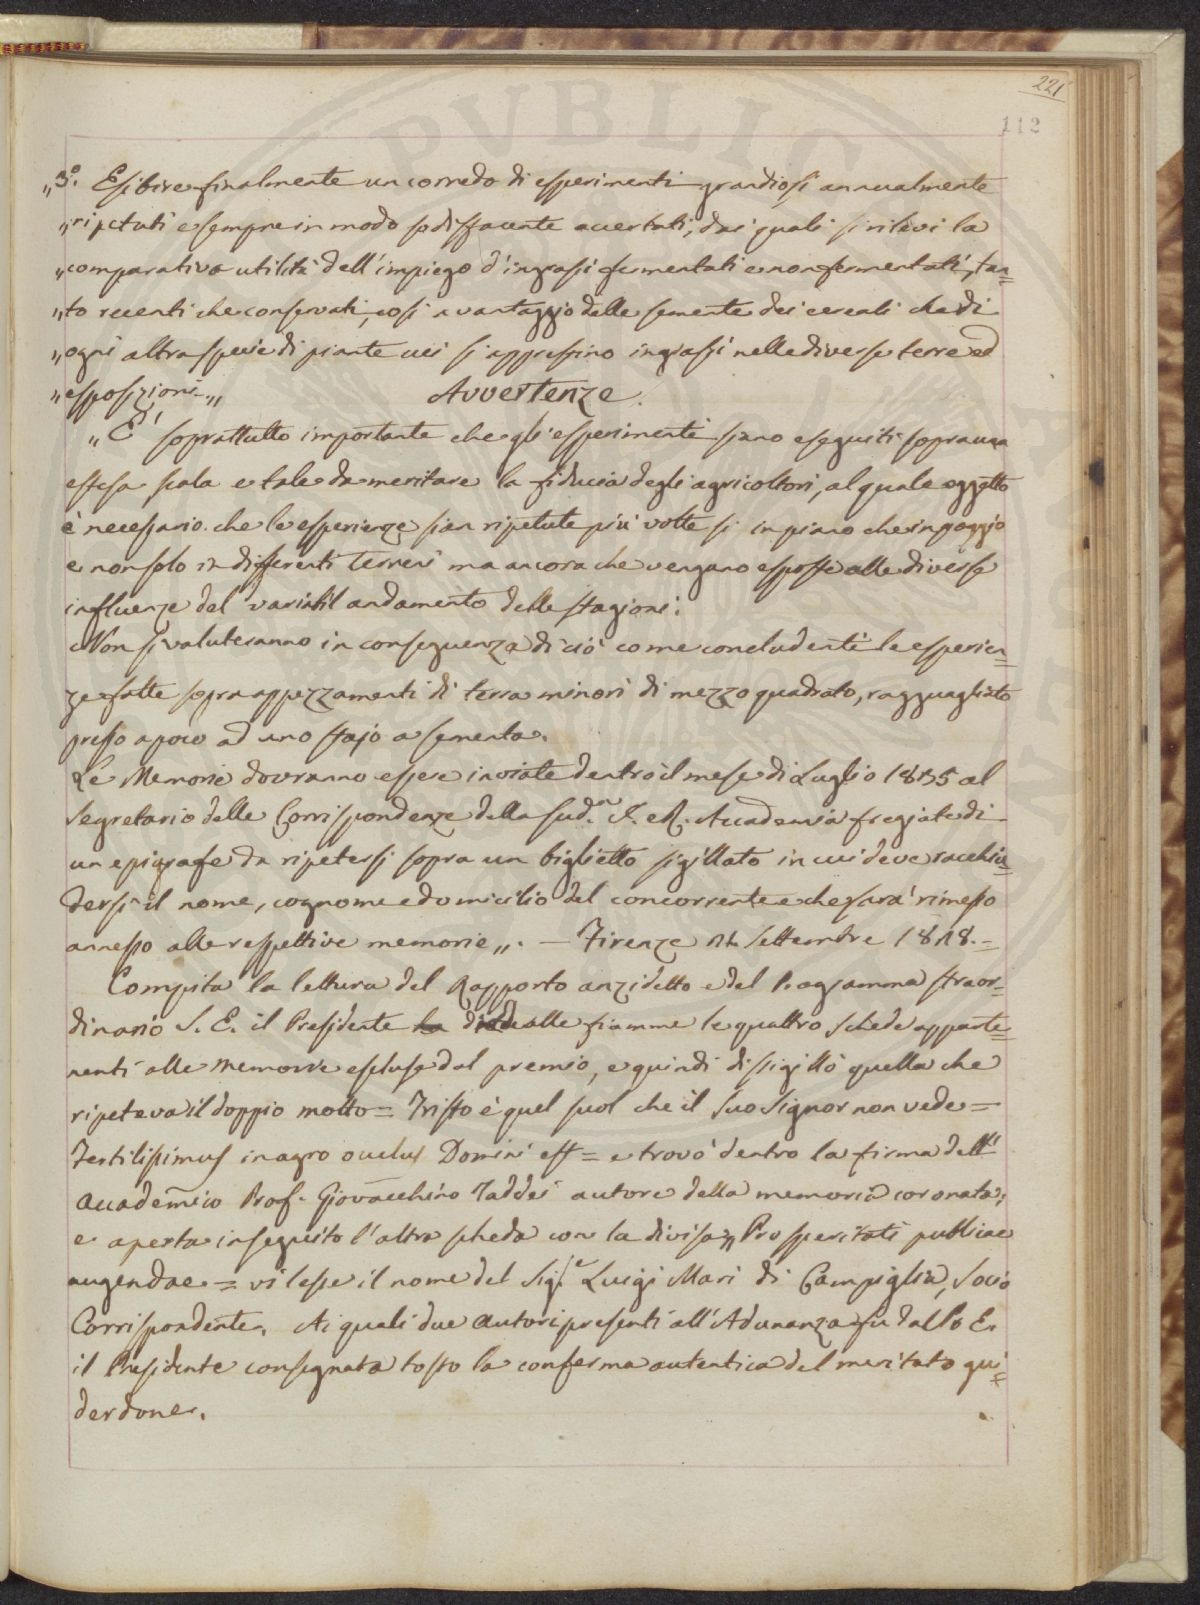 221
112
„3.° Esibire finalmente un corredo di esperimenti grandiosi annualmente
„ripetuti e sempre in modo sodisfacente accertati, dai quali si rilevi la
„comparativa utilità dell'impiego d'ingrassi fermentati e non fermentati, tan=
„to recenti che conservati, così a vantaggio delle semente dei cereali che di
„ogni altra specie di piante cui si apprestino ingrassi nelle diverse terre ed
„esposizioni.„ Avvertenze.
„E' soprattutto importante che gli esperimenti siano eseguiti sopra una
estesa scala e tale da meritare la fiducia degli agricoltori, al quale oggetto
è necessario che le esperienze sian ripetute più volte si in piano che in poggio
e non solo in differenti terreni ma ancora che vengano esposte alle diverse
influenze del variabil andamento delle stagioni.
Non si valuteranno in conseguenza di ciò come concludenti le esperien=
ze fatte sopra appezzamenti di terra minori di mezzo quadrato, ragguagliato
presso a poco ad uno stajo a sementa.
Le Memorie dovranno essere inviate dentro il mese di Luglio 1835 al
Segretario delle Corrispondenze della Sud.a I. e R. Accademia fregiate di
un epigrafe da ripetersi sopra un biglietto sigillato in cui deve racchiu=
dersi il nome, cognome e domicilio del concorrente e che sarà rimesso
annesso alle respettive memorie„. — Firenze Settembre
Compita la lettura del Rapporto anzidetto e del Programma straor=
dinario S. E. il Presidente ha diede alle fiamme le quattro schede apparte=
nenti alle memorie escluse dal premio, e quindi dissigillò quella che
ripeteva il doppio motto = Tristo è quel suol che il suo Signor non vede =
Fertilissimus in agro oculus Domini est = e trovò dentro la firma dell'
Accademico Prof. Giovacchino Taddei autore della memoria coronata;
e aperta in seguito l'altra scheda con la divisa „ Prosperitati publicae
augendae = vi lesse il nome del Sig.r Luigi Mari di Campiglia, Socio
Corrispondente. Ai quali due autori presenti all'Adunanza fù dall'S. E.
il Presidente consegnata tosto la conferma autentica del meritato gui=
derdone.